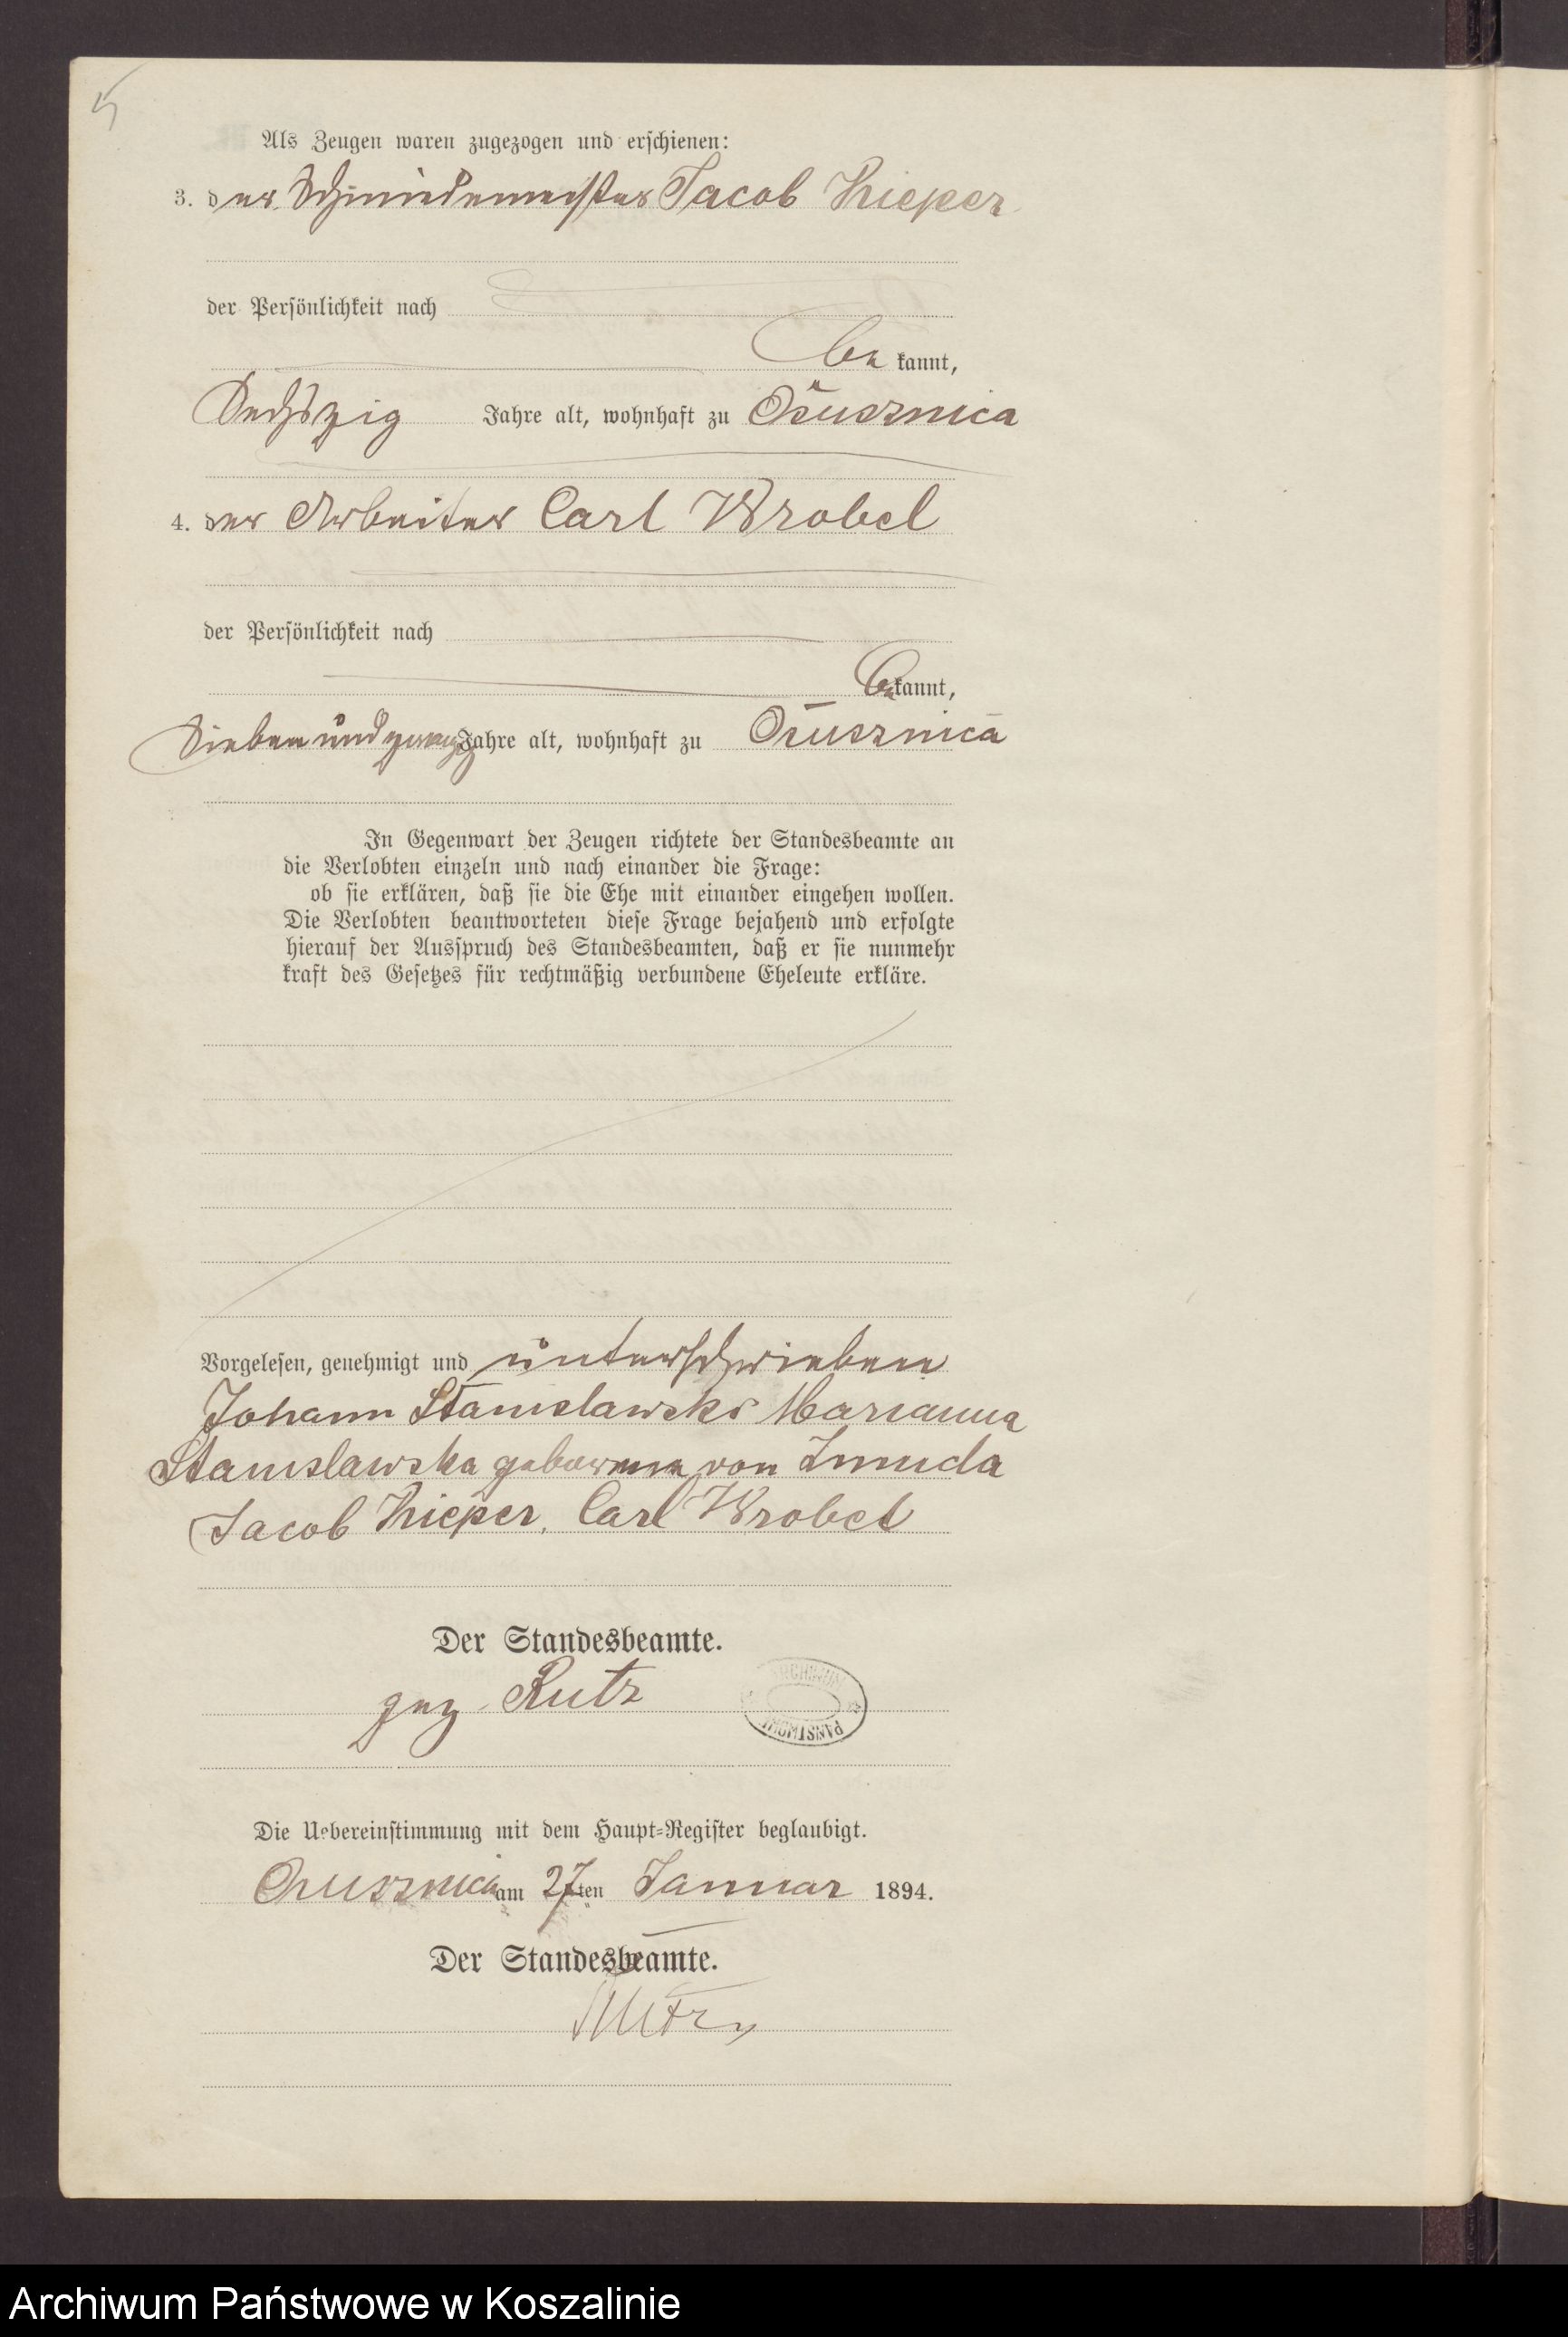 Als Zeugen waren zugezogen und erschienen:
3. der Schmiedemeister Jacob Kieper
der Persönlichkeit nach
be kannt,
Sechszig Jahre alt, wohnhaft zu Ossusznica
4. der Arbeiter Carl Wrobel
der Persönlichkeit nach
bekannt,
Sieben und zwanzig Jahre alt, wohnhaft zu Ossusznica
In Gegenwart der Zeugen richtete der Standesbeamte an
die Verlobten einzeln und nach einander die Frage:
ob sie erklären, daß sie die Ehe mit einander eingehen wollen.
Die Verlobten beantworteten diese Frage bejahend und erfolgte
hierauf der Ausspruch des Standesbeamten, daß er sie nunmehr
kraft des Gesetzes für rechtmäßig verbundene Eheleute erkläre.
Vorgelesen, genehmigt und unterschrieben
Johann Stanislawski Marianna
Stanislawska geborene von Zmuda
Jacob Kieper. Carl Wrobel
Der Standesbeamte.
gez Rutz
ARCHIWUM PAŃSTWOWE
Die Uebereinstimmung mit dem Haupt-Register beglaubigt.
am 27ten Januar 1894.
Der Standesbeamte.
Rutz
Archiwum Państwowe w Koszalinie